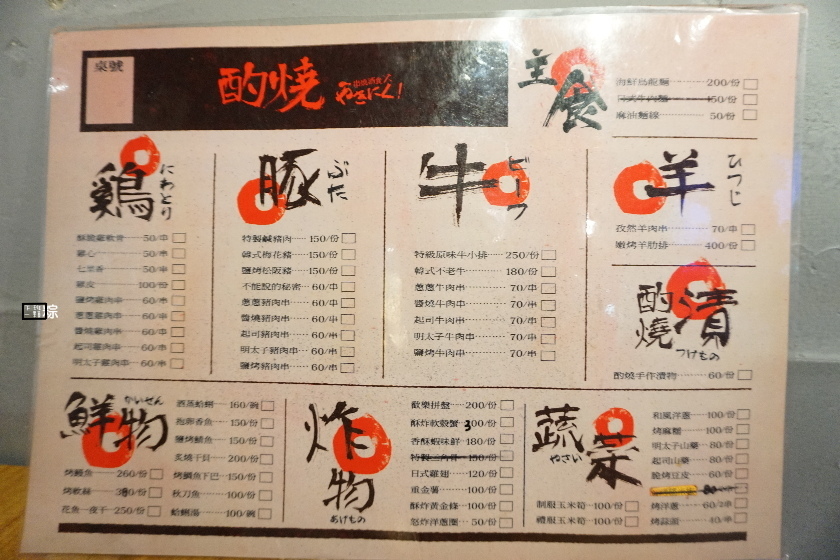 桌號
酌燒
串燒酒食人
やきにく!
主食
海鮮烏龍麵 200/份
日式牛肉麵 150/份
麻油麵線 50/份
鶏 にわとり
酥脆雞軟骨 50/串
雞心 50/串
七里香 50/串
雞皮 100/份
鹽烤雞肉串 60/串
蔥蔥雞肉串 60/串
醬燒雞肉串 60/串
起司雞肉串 60/串
明太子雞肉串 60/串
豚 ぶた
特製鹹豬肉 150/份
韓式梅花豬 150/份
鹽烤松阪豬 150/份
不能說的秘密 60/串
蔥蔥豬肉串 60/串
醬燒豬肉串 60/串
起司豬肉串 60/串
明太子豬肉串 60/串
鹽烤豬肉串 60/串
牛 ビーフ
特級原味牛小排 250/份
韓式不老牛 180/份
蔥蔥牛肉串 70/串
醬燒牛肉串 70/串
起司牛肉串 70/串
明太子牛肉串 70/串
鹽烤牛肉串 70/串
羊 ひつじ
孜然羊肉串 70/串
嫩烤羊肋排 400/份
酌燒漬 つけもの
酌燒手作漬物 60/份
鮮物 かいせん
酒蒸蛤蜊 160/碗
抱卵香魚 150/份
鹽烤鯖魚 150/份
炙燒干貝 200/份
烤鰻魚 260/份
烤鯛魚下巴 150/份
烤軟絲 380/份
秋刀魚 100/份
花魚一夜干 250/份
蛤蜊湯 100/碗
炸物 あげもの
歡樂拼盤 200/份
酥炸軟殼蟹 300/份
香酥蝦味鮮 180/份
特製三角骨 150/份
日式雞翅 120/份
重金薯 100/份
酥炸黃金條 100/份
怒炸洋蔥圈 50/份
蔬菜 やさい
和風洋蔥 100/份
烤麻糬 100/份
明太子山藥 80/份
起司山藥 80/份
脆烤豆皮 60/份
80
制服玉米筍 100/份
烤洋蔥 60/串
禮服玉米筍 100/份
烤蒜頭 40/串